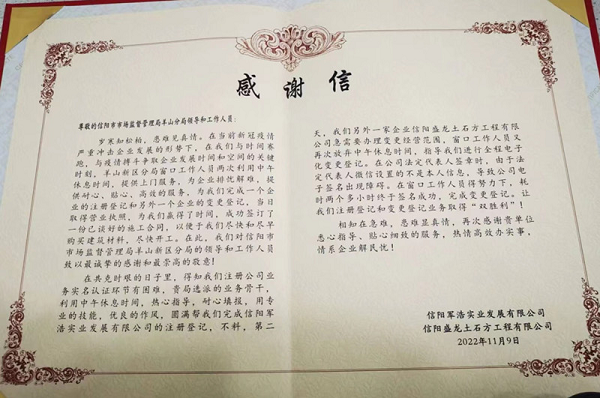 感谢信
尊敬的信阳市市场监督管理局羊山分局领导和工作人员:
岁寒知松柏,患难见真情。在当前新冠疫情
严重冲击企业发展的形势下,在我们与时间赛
跑,与疫情搏斗争取企业发展时间和空间的关键
时刻,羊山新区分局窗口工作人员两次利用中午
休息时间,提供上门服务。为企业排忧解难,提
供耐心、贴心、高效的服务,为我们完成一个企业
的注册登记和另外一个企业的变更登记,当日
取得营业执照,为我们赢得了时间,成功签订了
一份已谈好的施工合同,以便于我们尽快和尽早
购买建筑材料,尽快开工。在此,我们对信阳市市
场监督管理局羊山新区分局的领导和工作人员
致以最诚挚的感谢和最崇高的敬意!
在共克时艰的日子里,得知我们注册公司业
务实名认证环节有困难,贵局选派的业务骨干,
利用中午休息时间,热心指导,耐心填报,用专
业的技能,优良的作风,圆满帮我们完成信阳军
浩实业发展有限公司的注册登记,不料,第二
天,我们另外一家企业信阳盛龙土石方工程有限
公司急需要办理变更经营范围,窗口工作人员又
再次放弃中午休息时间,指导我们进行全程电子
化变更登记。在公司法定代表人签章时,由于法
定代表人微信设置的不是本人信息,导致公司电
子签名出现障碍。在窗口工作人员得努力下,耗
时两个多小时终于签名成功,完成变更登记。让
我们注册登记和变更登记业务取得“双胜利”!
相知在急难,患难显真情,再次感谢贵单位
悉心指导、贴心细致的服务,热情高效办实事,
情系企业解民忧!
信阳军浩实业发展有限公司
信阳盛龙土石方工程有限公司
2022年11月9日